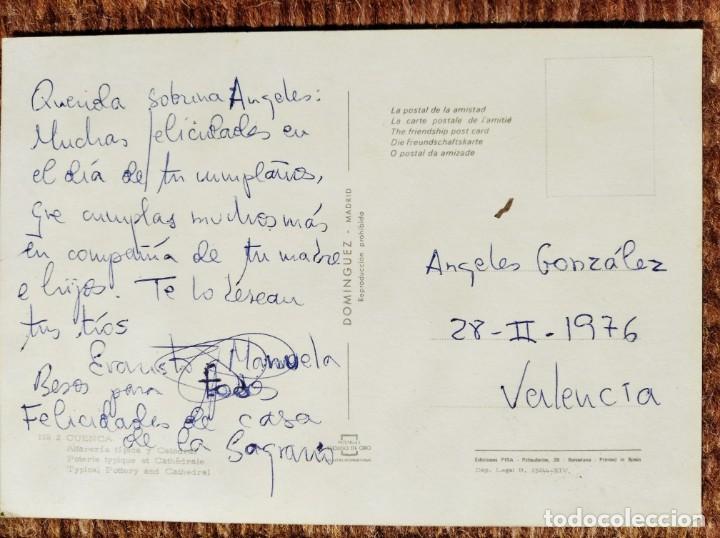 Querida sobrina Angeles:
Muchas felicidades en
el día de tu cumpleaños,
que cumplas muchos más
en compañía de tu madre
e hijos. Te lo desean
tus tíos
Evaristo Manuela
Besos para todos
Felicidades de casa
de la
2 CUENCA
Alfarería típica y Catedral
Poterie typique et Cathédrale
Typical Pottery and Cathedral
DOMINGUEZ - MADRID
Reproducción prohibida
La postal de la amistad
La carte postale de l'amitié
The friendship post card
Die Freundschaftskarte
O postal da amizade
Angeles González
28-II-1976
Valencia
Ediciones - Barcelona - Printed in Spain
Dep. Legal B. -XIV
todocoleccion.net